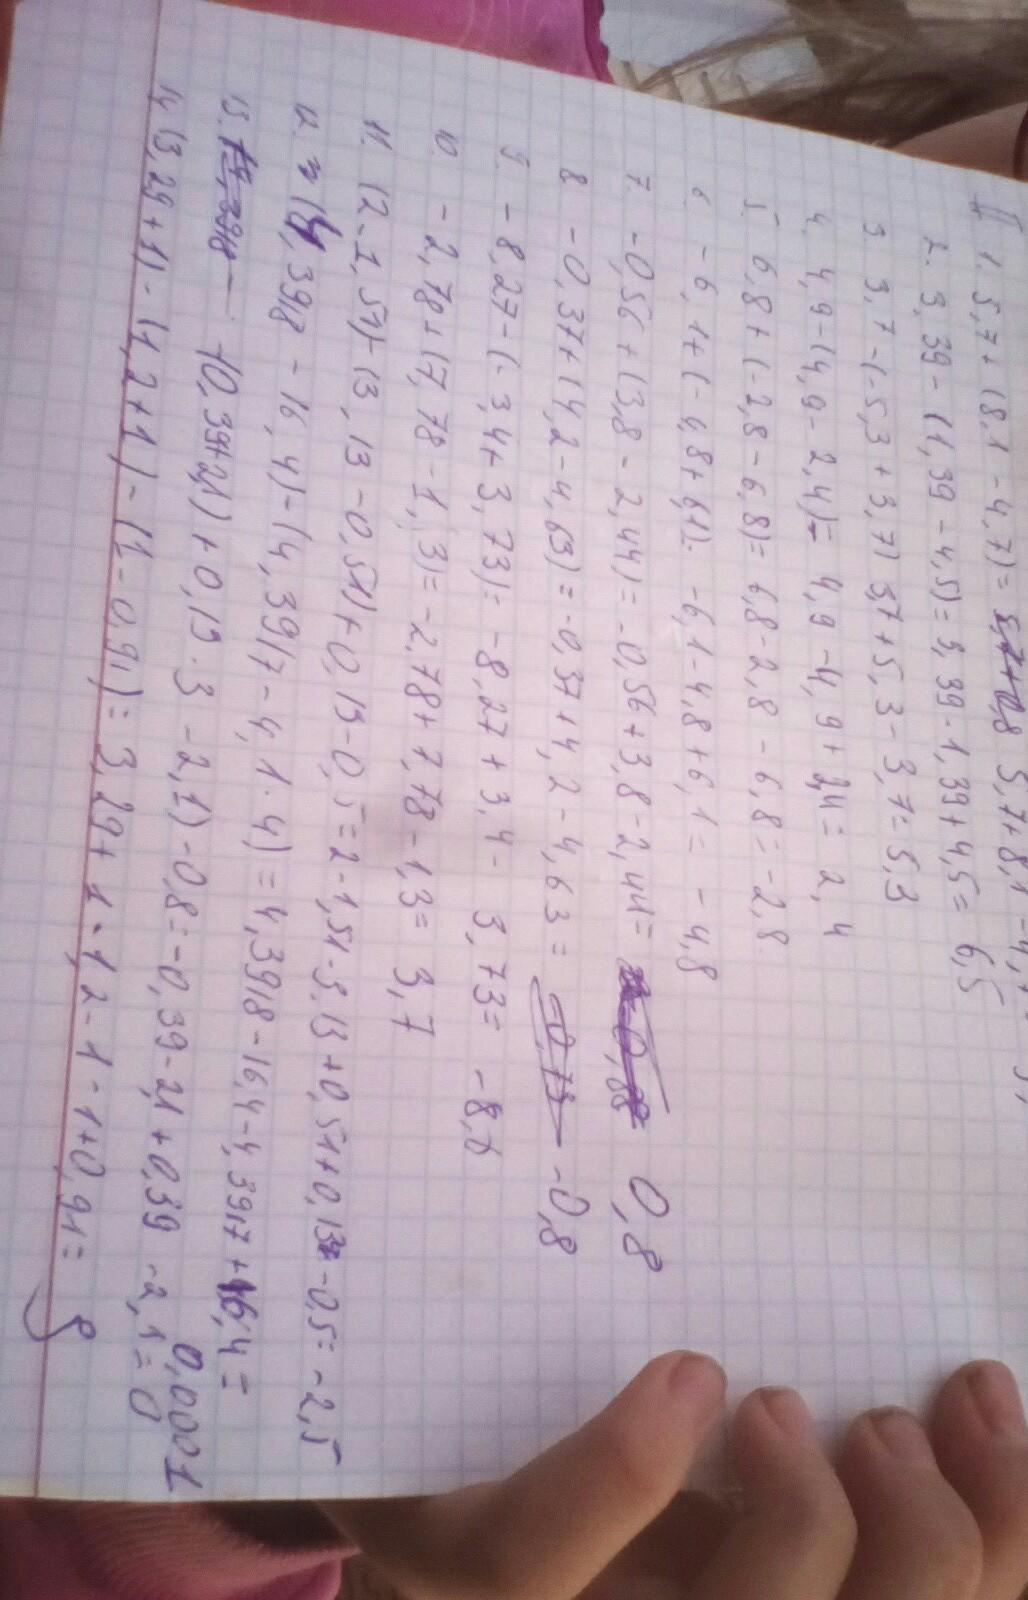 II 1. 5,7+(8,1-4,7)= 5,7+8,1-4,7
2. 3,39-(1,39-4,5)=3,39-1,39+4,5= 6,5
3. 3,7-(-5,3+3,7) 3,7+5,3-3,7=5,3
4. 4,9-(4,9-2,4)= 4,9-4,9+2,4= 2,4
5. 6,8+(-2,8-6,8)= 6,8-2,8-6,8=-2,8
6. -6,1+(-4,8+6,1). -6,1-4,8+6,1= -4,8
7. -0,56+(3,8-2,44)=-0,56+3,8-2,44= 0,8
8 -0,37+(4,2-4,63)=-0,37+4,2-4,63= -0,8
9. -8,27-(-3,4+3,73)=-8,27+3,4- 3,73= -8,6
10. -2,78+(7,78-1,3)=-2,78+7,78-1,3= 3,7
11. (2-1,51)-(3,13-0,51)+0,13-0,5=2-1,51-3,13+0,51+0,13-0,5=-2,5
12. (4,3918-16,4)-(4,3917-4,1·4)=4,3918-16,4-4,3917+16,4= 0,0001
13. -(0,39+2,1)+0,13·3 -2,1)-0,8=-0,39-2,1+0,39 -2,1=0
14 (3,29+1)-(1,2+1)-(1-0,91)= 3,29+1-1,2-1-1+0,91=